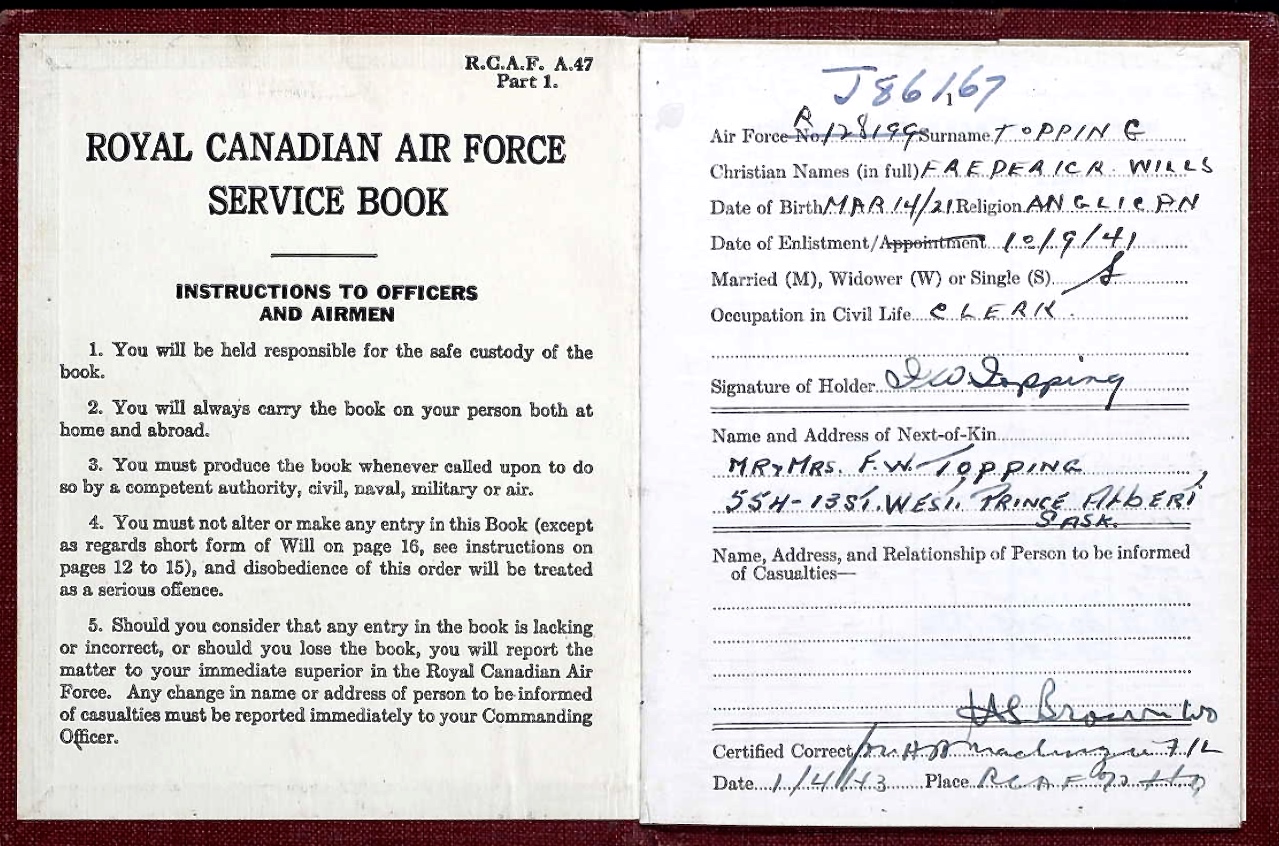 R.C.A.F. A.47
Part 1.
ROYAL CANADIAN AIR FORCE
SERVICE BOOK
INSTRUCTIONS TO OFFICERS
AND AIRMEN
1. You will be held responsible for the safe custody of the
book.
2. You will always carry the book on your person both at
home and abroad.
3. You must produce the book whenever called upon to do
so by a competent authority, civil, naval, military or air.
4. You must not alter or make any entry in this Book (except
as regards short form of Will on page 16, see instructions on
pages 12 to 15), and disobedience of this order will be treated
as a serious offence.
5. Should you consider that any entry in the book is lacking
or incorrect, or should you lose the book, you will report the
matter to your immediate superior in the Royal Canadian Air
Force. Any change in name or address of person to be informed
of casualties must be reported immediately to your Commanding
Officer.
J86167
1
Air Force No. R128199 Surname TOPPING
Christian Names (in full) FREDERICK WILLS
Date of Birth MAR 14/21 Religion ANGLICAN
Date of Enlistment/Appointment 10/9/41
Married (M), Widower (W) or Single (S) S
Occupation in Civil Life CLERK.
Signature of Holder FW Topping
Name and Address of Next-of-Kin
MR & MRS. F.W. TOPPING,
554-13 ST. WEST, PRINCE ALBERT
SASK.
Name, Address, and Relationship of Person to be informed
of Casualties—
Brown WO
Certified Correct F/L
Date 1/4/43 Place RCAF